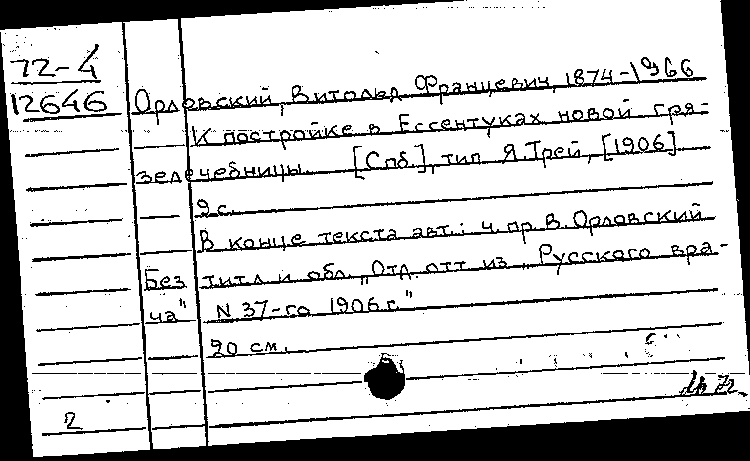 72-4
12646
Орловский, Витольд Францевич, 1874-1966
К постройке в Ессентуках новой гря-
зелечебницы. [Спб.], тип. Я. Трей, [1906]
9 с.
В конце текста авт.: ч. пр. В. Орловский
Без титл и обл. „Отд. отт. из „Русского вра-
ча" N 37-го 1906 г."
20 см.
2